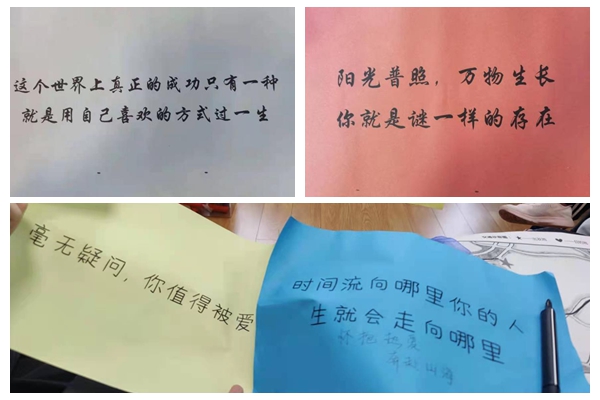 这个世界上真正的成功只有一种
就是用自己喜欢的方式过一生
阳光普照，万物生长
你就是谜一样的存在
毫无疑问，你值得被爱
时间流向哪里你的人
生就会走向哪里
怀抱热爱
奔赴山海